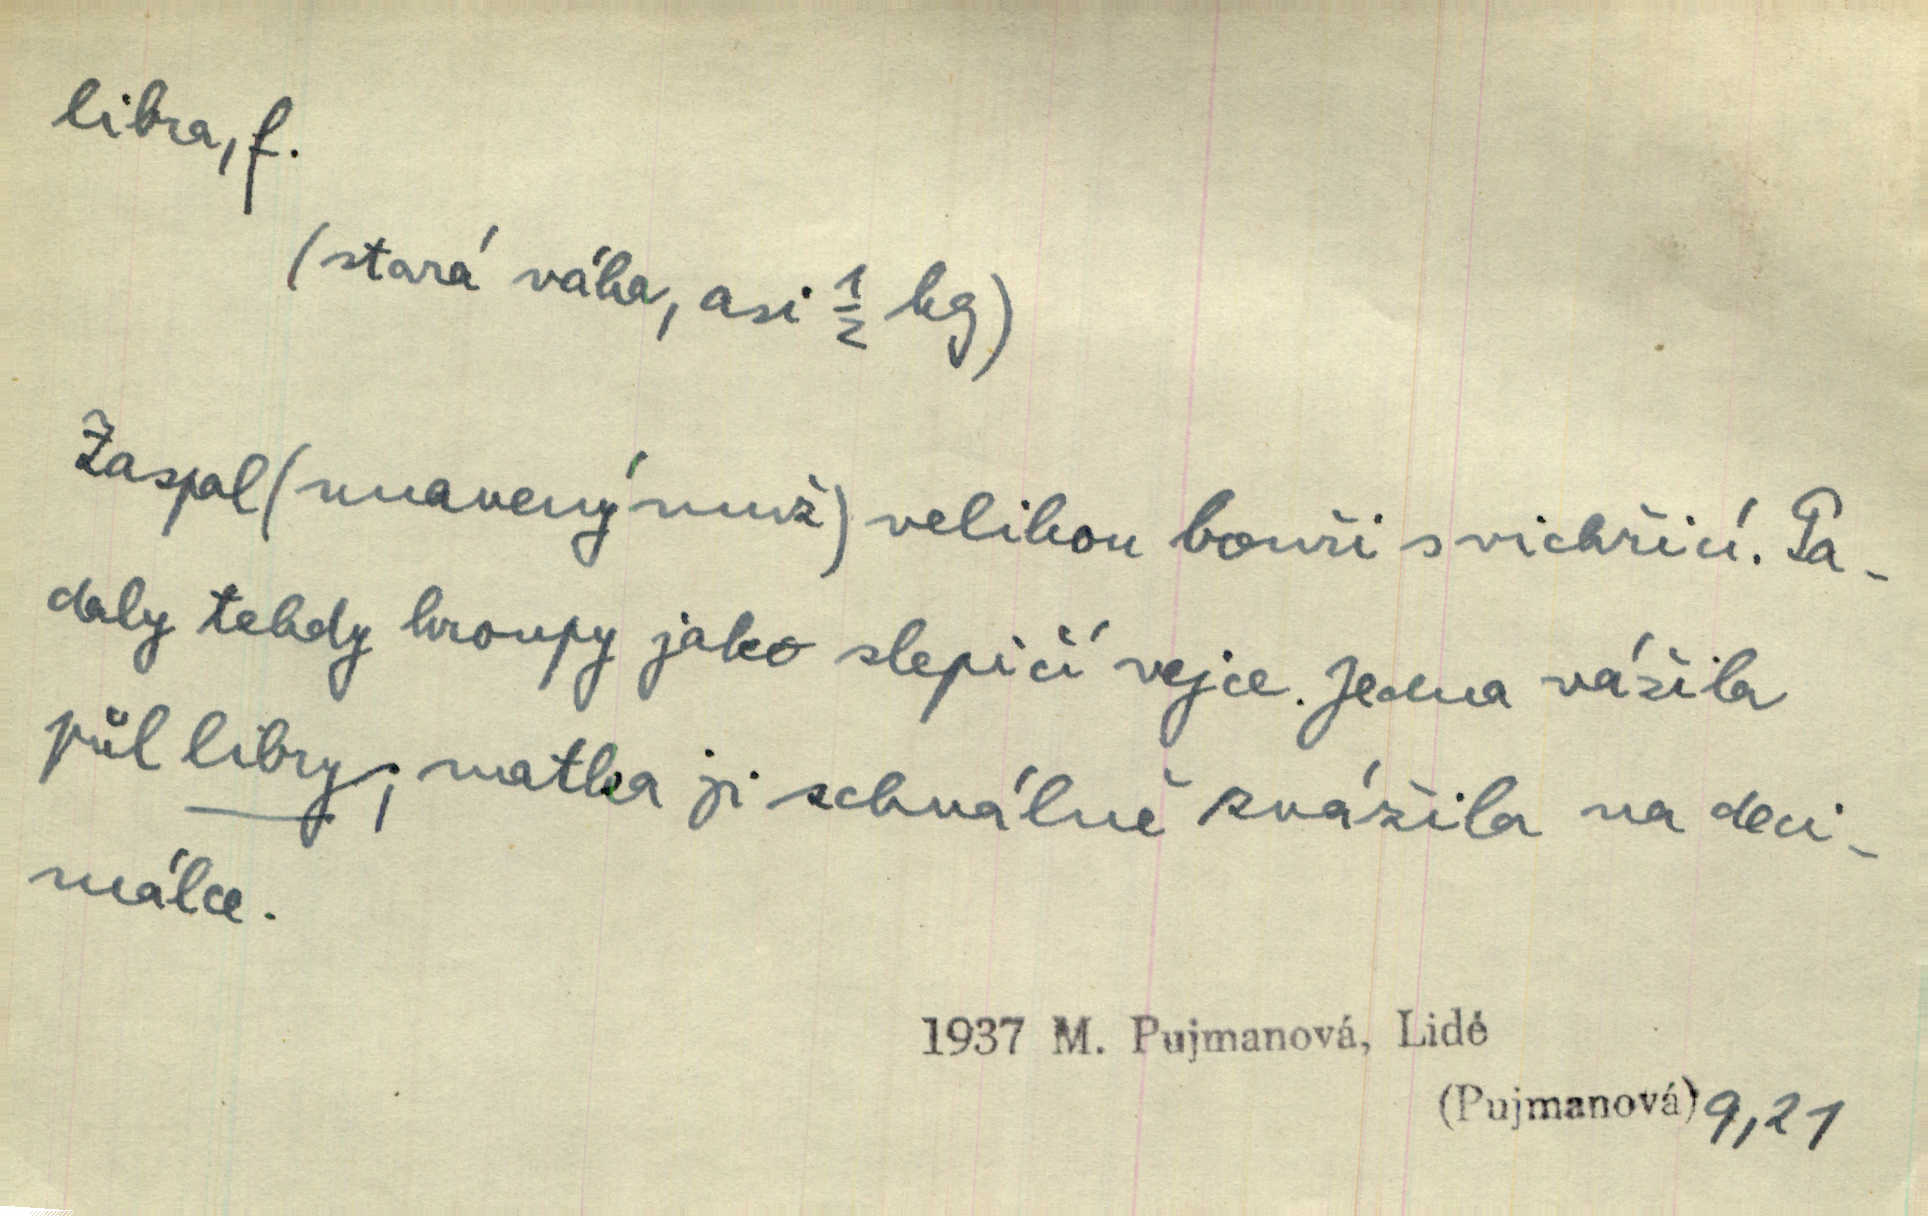 libra, f.
(stará váha, asi ½ kg)
Zaspal (unavený muž) velikou bouři s vichřicí. Pa-
daly tehdy kroupy jako slepičí vejce. Jedna vážila
půl libry; matka ji schválně zvážila na deci-
málce.
1937 M. Pujmanová, Lidé
(Pujmanová) 9,21